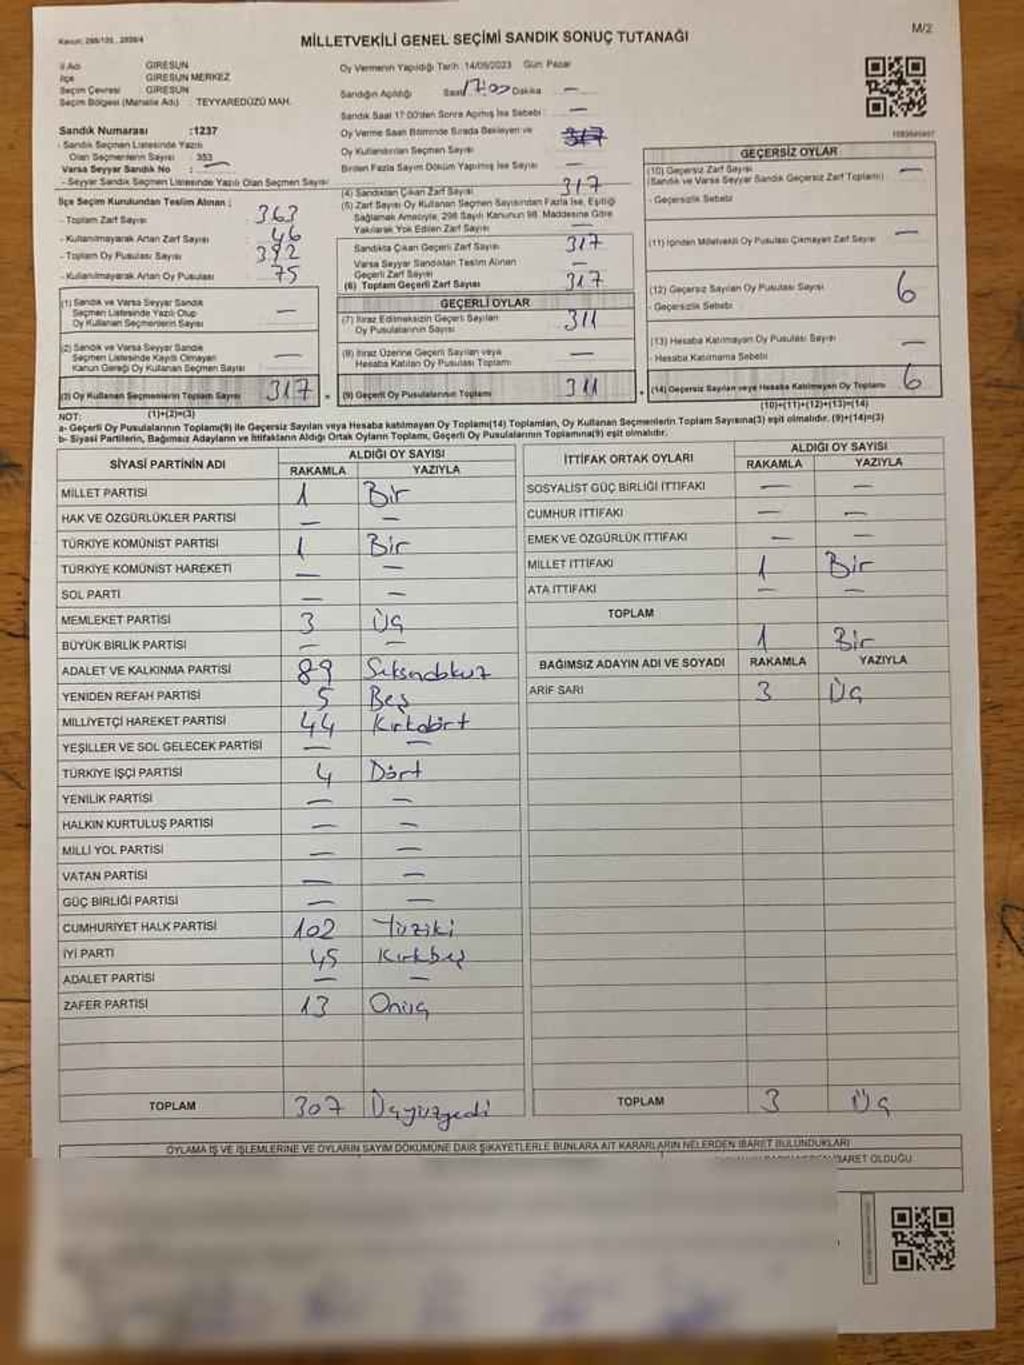 M/2
MİLLETVEKİLİ GENEL SEÇİMİ SANDIK SONUÇ TUTANAĞI
İl Adı GİRESUN
İlçe GİRESUN MERKEZ
Seçim Çevresi : GİRESUN
Seçim Bölgesi (Mahalle Adı) : TEYYAREDÜZÜ MAH.
Sandık Numarası :1237
- Sandık Seçmen Listesinde Yazılı
Olan Seçmenlerin Sayısı : 353
Varsa Seyyar Sandık No : —
- Seyyar Sandık Seçmen Listesinde Yazılı Olan Seçmen Sayısı
İlçe Seçim Kurulundan Teslim Alınan ;
- Toplam Zarf Sayısı 363
- Kullanılmayarak Artan Zarf Sayısı 46
- Toplam Oy Pusulası Sayısı 392
- Kullanılmayarak Artan Oy Pusulası 75
(1) Sandık ve Varsa Seyyar Sandık
Seçmen Listesinde Yazılı Olup
Oy Kullanan Seçmenlerin Sayısı —
(2) Sandık ve Varsa Seyyar Sandık
Seçmen Listesinde Kayıtlı Olmayan
Kanun Gereği Oy Kullanan Seçmen Sayısı —
(3) Oy Kullanan Seçmenlerin Toplam Sayısı 317
(1)+(2)=(3)
Oy Vermenin Yapıldığı Tarih :14/05/2023 Gün: Pazar
Sandığın Açıldığı Saat 17:00 Dakika —
Sandık Saat 17.00'den Sonra Açılmış İse Sebebi : —
Oy Verme Saati Bitiminde Sırada Bekleyen ve
Oy Kullandırılan Seçmen Sayısı 317
Birden Fazla Sayım Döküm Yapılmış İse Sayısı —
(4) Sandıktan Çıkan Zarf Sayısı 317
(5) Zarf Sayısı Oy Kullanan Seçmen Sayısından Fazla İse, Eşitliği
Sağlamak Amacıyla, 298 Sayılı Kanunun 98. Maddesine Göre
Yakılarak Yok Edilen Zarf Sayısı —
Sandıkta Çıkan Geçerli Zarf Sayısı 317
Varsa Seyyar Sandıktan Teslim Alınan
Geçerli Zarf Sayısı —
(6) Toplam Geçerli Zarf Sayısı 317
GEÇERLİ OYLAR
(7) İtiraz Edilmeksizin Geçerli Sayılan
Oy Pusulalarının Sayısı 311
(8) İtiraz Üzerine Geçerli Sayılan veya
Hesaba Katılan Oy Pusulası Toplamı —
(9) Geçerli Oy Pusulalarının Toplamı 311
GEÇERSİZ OYLAR
(10) Geçersiz Zarf Sayısı
(Sandık ve Varsa Seyyar Sandık Geçersiz Zarf Toplamı) —
- Geçersizlik Sebebi
(11) İçinden Milletvekili Oy Pusulası Çıkmayan Zarf Sayısı —
(12) Geçersiz Sayılan Oy Pusulası Sayısı 6
- Geçersizlik Sebebi
(13) Hesaba Katılmayan Oy Pusulası Sayısı —
- Hesaba Katılmama Sebebi
(14) Geçersiz Sayılan veya Hesaba Katılmayan Oy Toplamı 6
(10)+(11)+(12)+(13)=(14)
NOT:
a- Geçerli Oy Pusulalarının Toplamı(9) ile Geçersiz Sayılan veya Hesaba katılmayan Oy Toplamı(14) Toplamları, Oy Kullanan Seçmenlerin Toplam Sayısına(3) eşit olmalıdır. (9)+(14)=(3)
b- Siyasi Partilerin, Bağımsız Adayların ve İttifakların Aldığı Ortak Oyların Toplamı, Geçerli Oy Pusulalarının Toplamına(9) eşit olmalıdır.
SİYASİ PARTİNİN ADI ALDIĞI OY SAYISI
RAKAMLA YAZIYLA
MİLLET PARTİSİ 1 Bir
HAK VE ÖZGÜRLÜKLER PARTİSİ — —
TÜRKİYE KOMÜNİST PARTİSİ 1 Bir
TÜRKİYE KOMÜNİST HAREKETİ — —
SOL PARTİ — —
MEMLEKET PARTİSİ 3 Üç
BÜYÜK BİRLİK PARTİSİ — —
ADALET VE KALKINMA PARTİSİ 89 Seksendokuz
YENİDEN REFAH PARTİSİ 5 Beş
MİLLİYETÇİ HAREKET PARTİSİ 44 Kırkdört
YEŞİLLER VE SOL GELECEK PARTİSİ — —
TÜRKİYE İŞÇİ PARTİSİ 4 Dört
YENİLİK PARTİSİ — —
HALKIN KURTULUŞ PARTİSİ — —
MİLLİ YOL PARTİSİ — —
VATAN PARTİSİ — —
GÜÇ BİRLİĞİ PARTİSİ — —
CUMHURİYET HALK PARTİSİ 102 Yüziki
İYİ PARTİ 45 Kırkbeş
ADALET PARTİSİ — —
ZAFER PARTİSİ 13 Onüç
TOPLAM 307 Üçyüzyedi
İTTİFAK ORTAK OYLARI ALDIĞI OY SAYISI
RAKAMLA YAZIYLA
SOSYALİST GÜÇ BİRLİĞİ İTTİFAKI — —
CUMHUR İTTİFAKI — —
EMEK VE ÖZGÜRLÜK İTTİFAKI — —
MİLLET İTTİFAKI 1 Bir
ATA İTTİFAKI — —
TOPLAM 1 Bir
BAĞIMSIZ ADAYIN ADI VE SOYADI RAKAMLA YAZIYLA
ARİF SARI 3 Üç
TOPLAM 3 Üç
OYLAMA İŞ VE İŞLEMLERİNE VE OYLARIN SAYIM DÖKÜMÜNE DAİR ŞİKAYETLERLE BUNLARA AİT KARARLARIN NELERDEN İBARET BULUNDUKLARI
İBARET OLDUĞU